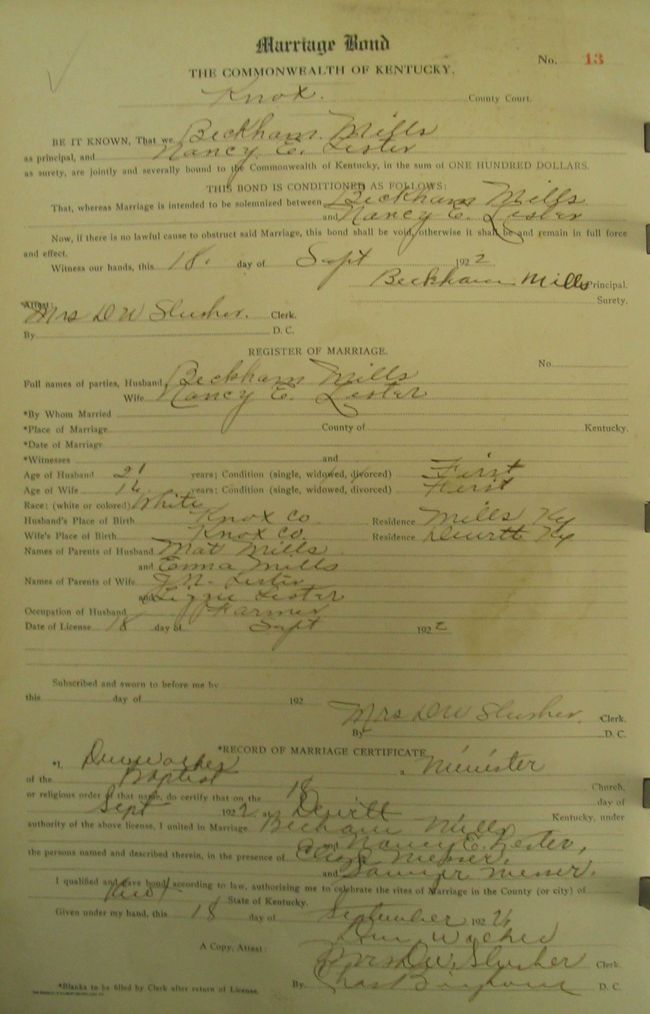 Marriage Bond
No. 13
THE COMMONWEALTH OF KENTUCKY.
Knox. County Court.
BE IT KNOWN, That we Beckham Mills
as principal, and Nancy E. Lister
as surety, are jointly and severally bound to the Commonwealth of Kentucky, in the sum of ONE HUNDRED DOLLARS.
THIS BOND IS CONDITIONED AS FOLLOWS:
That, whereas Marriage is intended to be solemnized between Beckham Mills
and Nancy E. Lister
Now, if there is no lawful cause to obstruct said Marriage, this bond shall be void, otherwise it shall be and remain in full force
and effect.
Witness our hands, this 18. day of Sept 1922
Beckham Mills Principal.
Surety.
*Attest:
Mrs D W Slusher. Clerk.
By D. C.
REGISTER OF MARRIAGE.
No.
Full names of parties, Husband Beckham Mills
Wife Nancy E. Lister
*By Whom Married
*Place of Marriage County of Kentucky.
*Date of Marriage
*Witnesses and
Age of Husband 21 years; Condition (single, widowed, divorced) First
Age of Wife years; Condition (single, widowed, divorced) First
Race: (white or colored) White
Husband's Place of Birth Knox Co Residence Mills Ky
Wife's Place of Birth Knox Co. Residence Dewitt Ky
Names of Parents of Husband Mat Mills
and Emma Mills
Names of Parents of Wife Lister
and Lizzie Lister
Occupation of Husband Farmer
Date of License 18 day of Sept 1922
Subscribed and sworn to before me by
this day of 192
Mrs D W Slusher. Clerk.
By D. C.
*RECORD OF MARRIAGE CERTIFICATE
*I, , Minister
of the Baptist Church,
or religious order of that name, do certify that on the 18 day of
Sept 1922 at Dewitt Kentucky, under
authority of the above license, I united in Marriage Becham Mills
and Nancy E. Lester,
the persons named and described therein, in the presence of Messer,
and Messer.
I qualified and gave bond, according to law, authorizing me to celebrate the rites of Marriage in the County (or city) of
Knox State of Kentucky.
Given under my hand, this 18 day of September 192
A Copy, Attest: Mrs D W. Slusher Clerk.
*Blanks to be filled by Clerk after return of License. By D. C.